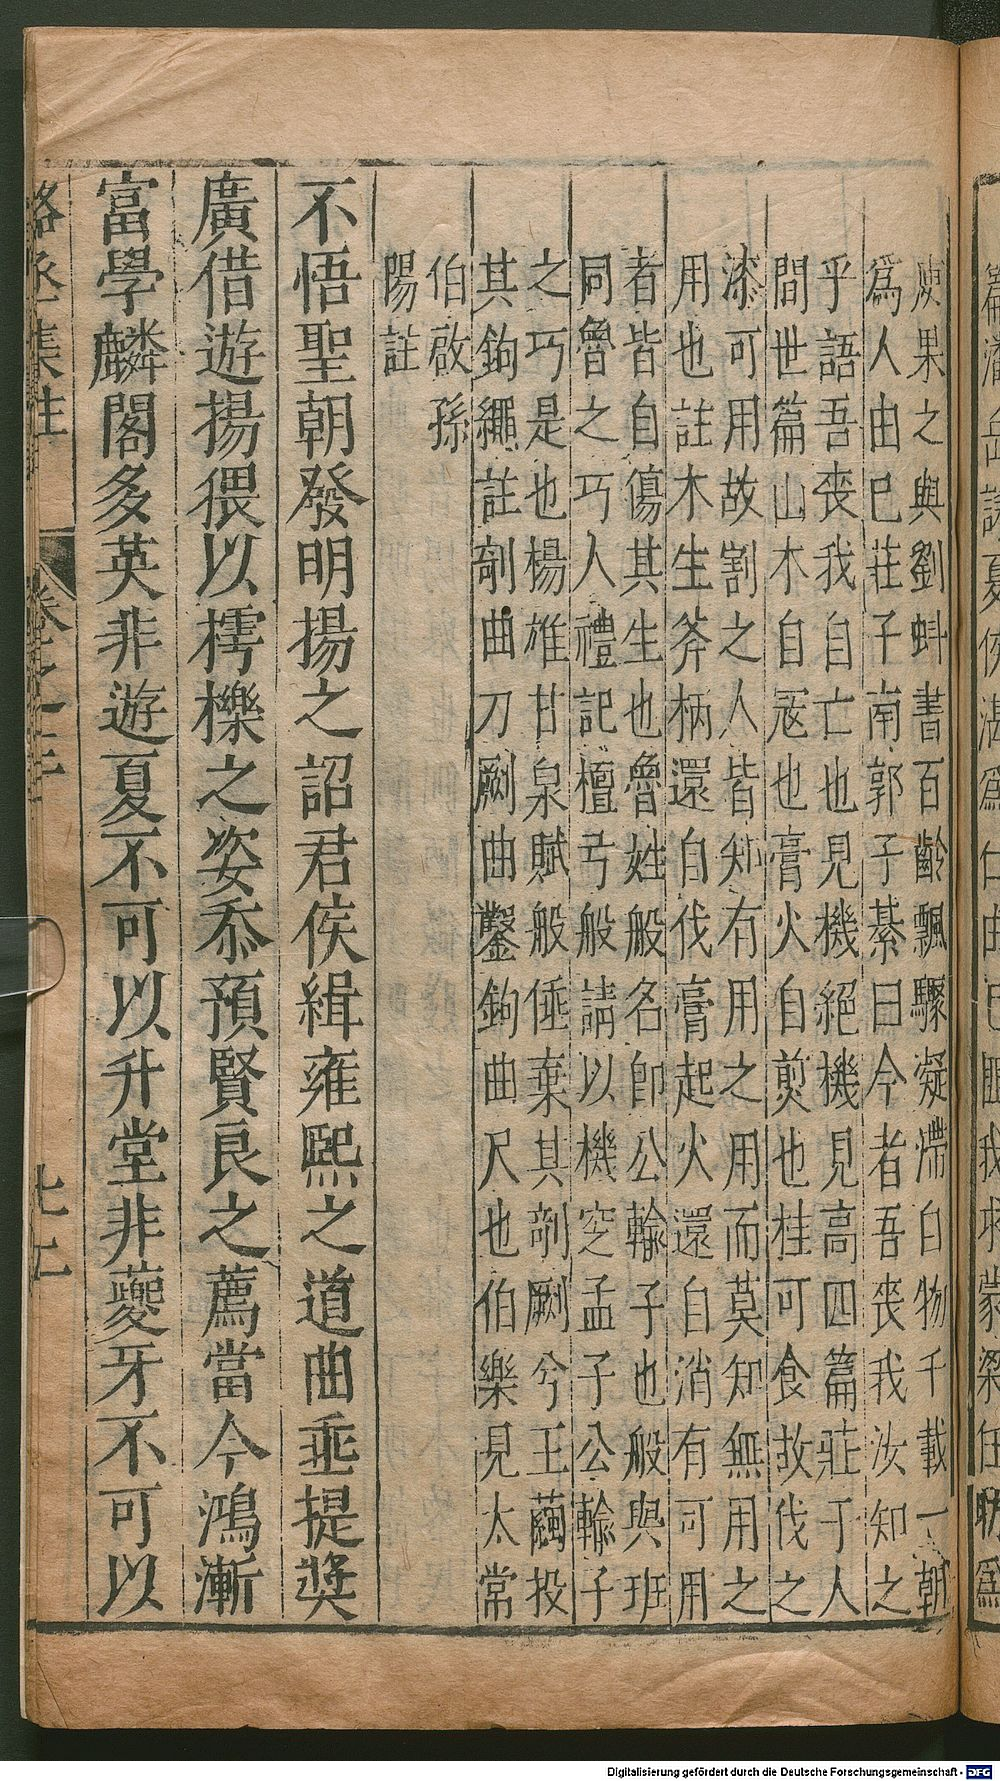 庾果之與劉虯書百齡飄驟凝滯自物千載一朝
爲人由已莊子南郭子綦曰今者吾喪我汝知之
乎語吾喪我自亡也見機絕機見高四篇莊子人
間世篇山木自寇也膏火自煎也桂可食故伐之
漆可用故割之人皆知有用之用而莫知無用之
用也註木生斧柄還自伐膏起火還自消有可用
者皆自傷其生也魯姓般名卽公輸子也般與班
同魯之巧人禮記檀弓般請以機窆孟子公輸子
之巧是也楊雄甘泉賦般倕棄其剞劂兮王繭投
其鉤繩註剞曲刀劂曲鑿鉤曲尺也伯樂見太常
伯啟孫
陽註
不悟聖朝發明揚之詔君侯緝雍熙之道曲垂提獎
廣借遊揚猥以樗櫟之姿忝預賢良之薦當今鴻漸
富學麟閣多英非遊夏不可以升堂非夔牙不可以
駱丞集註
卷之三
篇潘岳註夏侯湛爲仁由已匪我求蒙梁任昉爲
Digitalisierung gefördert durch die Deutsche Forschungsgemeinschaft - DFG